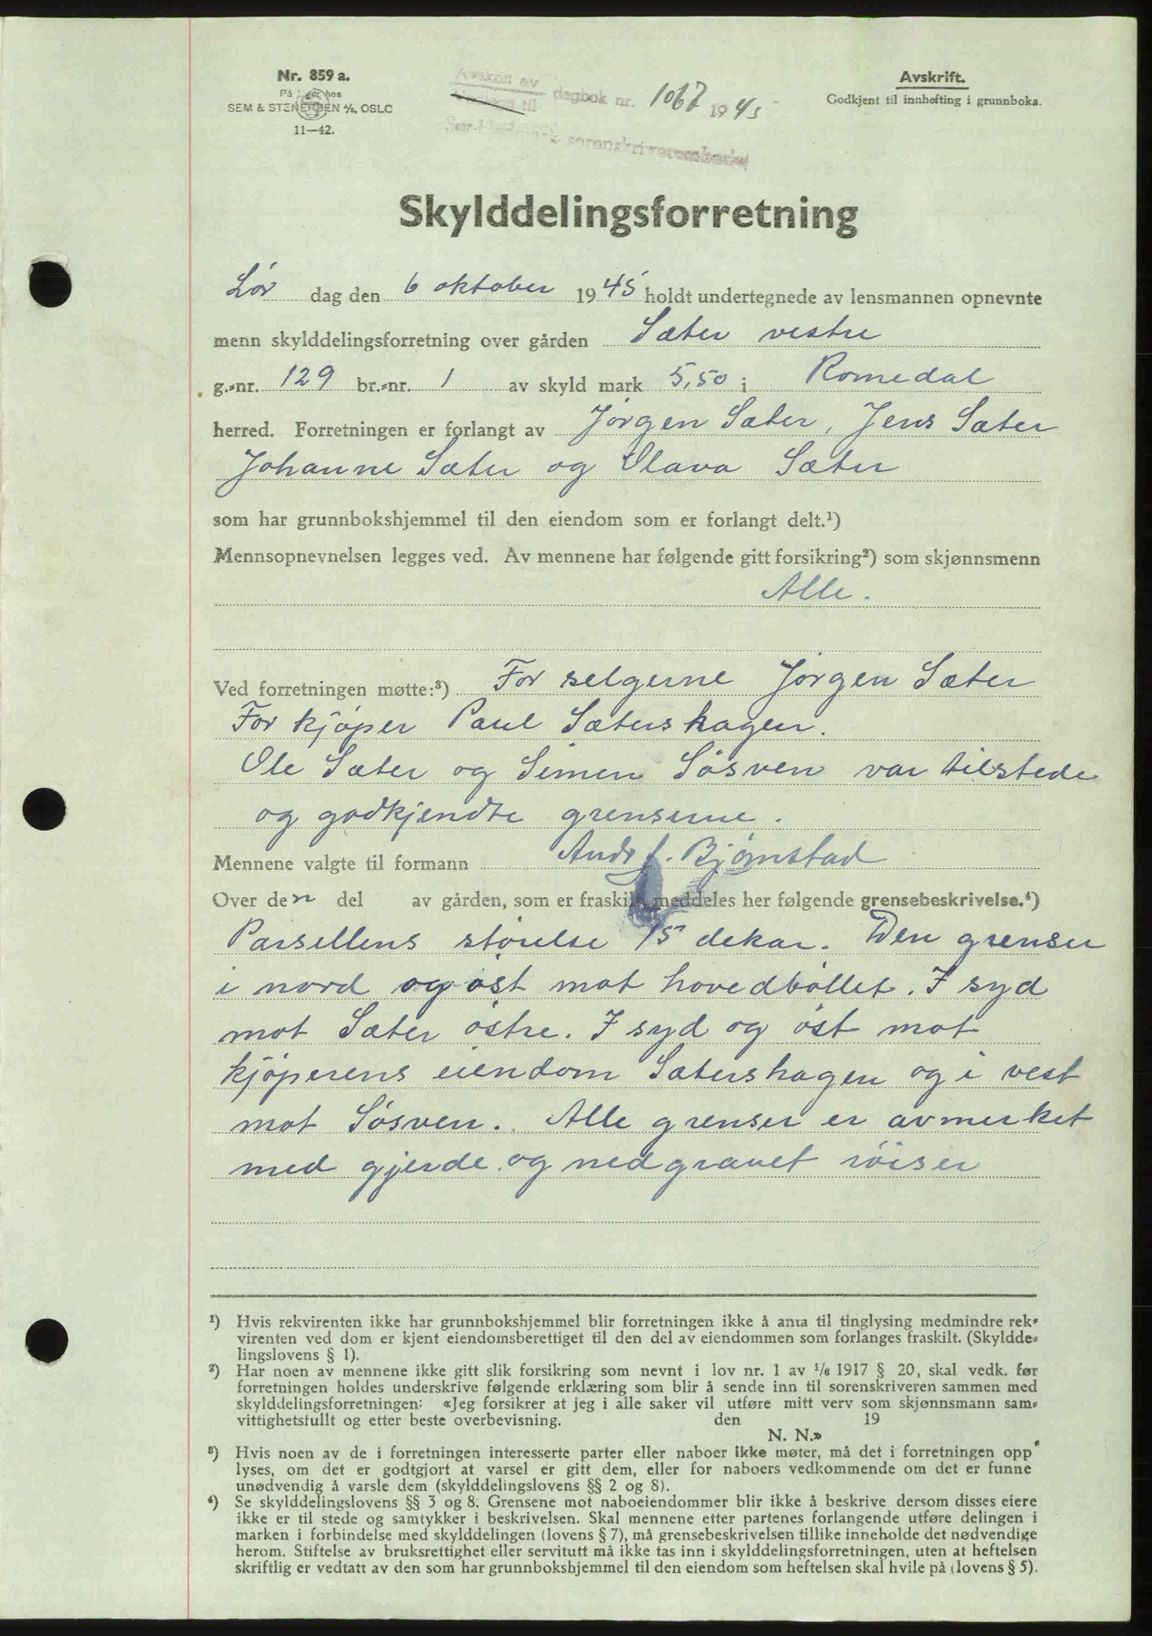 Nr. 859 a.
På lager hos
SEM & STENERSEN A/S, OSLO
11—42.
Avskrift av
dagbok nr. 1067 1945
Sør-Hedmark sorenskriverembede
Avskrift.
Godkjent til innhefting i grunnboka.
Skylddelingsforretning
Lør dag den 6 oktober 1945 holdt undertegnede av lensmannen opnevnte
menn skylddelingsforretning over gården Sæter vestre
g.-nr. 129 br.-nr. 1 av skyld mark 5,50 i Romedal
herred. Forretningen er forlangt av Jørgen Sæter, Jens Sæter
Johanne Sæter og Olava Sæter
som har grunnbokshjemmel til den eiendom som er forlangt delt.¹)
Mennsopnevnelsen legges ved. Av mennene har følgende gitt forsikring²) som skjønnsmenn
Alle.
Ved forretningen møtte:³) For selgerne Jørgen Sæter
For kjøper Paul Sætershagen.
Ole Sæter og Simen Søsven var tilstede
og godkjendte grenserne.
Mennene valgte til formann Andr J. Bjørnstad
Over den del av gården, som er fraskilt, meddeles her følgende grensebeskrivelse.⁴)
Parsellens størelse 15 dekar. Den grenser
i nord og øst mot hovedbøllet. I syd
mot Sæter østre. I syd og øst mot
kjøperens eiendom Sætershagen og i vest
mot Søsven. Alle grenser er avmerket
med gjerde og nedgravet røiser
¹) Hvis rekvirenten ikke har grunnbokshjemmel blir forretningen ikke å anta til tinglysing medmindre rek-
virenten ved dom er kjent eiendomsberettiget til den del av eiendommen som forlanges fraskilt. (Skyldde-
lingslovens § 1).
²) Har noen av mennene ikke gitt slik forsikring som nevnt i lov nr. 1 av ¹/₆ 1917 § 20, skal vedk. før
forretningen holdes underskrive følgende erklæring som blir å sende inn til sorenskriveren sammen med
skylddelingsforretningen: «Jeg forsikrer at jeg i alle saker vil utføre mitt verv som skjønnsmann sam-
vittighetsfullt og etter beste overbevisning. den 19
N. N.»
³) Hvis noen av de i forretningen interesserte parter eller naboer ikke møter, må det i forretningen opp-
lyses, om det er godtgjort at varsel er gitt dem, eller for naboers vedkommende om det er funne
unødvendig å varsle dem (skylddelingslovens §§ 2 og 8).
⁴) Se skylddelingslovens §§ 3 og 8. Grensene mot naboeiendommer blir ikke å beskrive dersom disses eiere
ikke er til stede og samtykker i beskrivelsen. Skal mennene etter partenes forlangende utføre delingen i
marken i forbindelse med skylddelingen (lovens § 7), må grensebeskrivelsen tillike inneholde det nødvendige
herom. Stiftelse av bruksrettighet eller servitutt må ikke tas inn i skylddelingsforretningen, uten at heftelsen
skriftlig er vedtatt av den som har grunnbokshjemmel til den eiendom som heftelsen skal hvile på (lovens § 5).